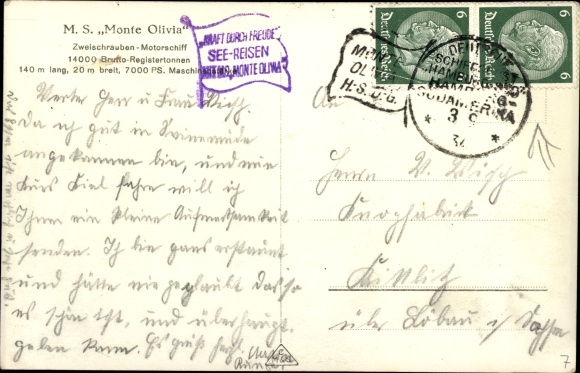 M. S. „Monte Olivia"
Zweischrauben-Motorschiff
14000 Brutto-Registertonnen
140 m lang, 20 m breit, 7000 PS.
„KRAFT DURCH FREUDE"
SEE-REISEN
M.S. MONTE OLIVIA
MONTE
OLIVIA
H.-S.D.G.
DEUTSCHE
SCHIFFSPOST
HAMBURG-
SÜDAMERIKA
3 9
6
6
Deutsches Reich
Deutsches Reich
Werter Herr u Frau Wich.
Da ich gut in Swinemünde
angekommen bin, und wir
Kurs Kiel fahren will ich
Ihnen ein kleine Aufmerksamkeit
senden. Ich bin ganz erstaunt
und hätte nie geglaubt das so
es schön ist, und überhaupt
geben kann. Es grüßt
An
Herrn
Knopfabrik
Kittlitz
über Löbau i/ Sachsen
7